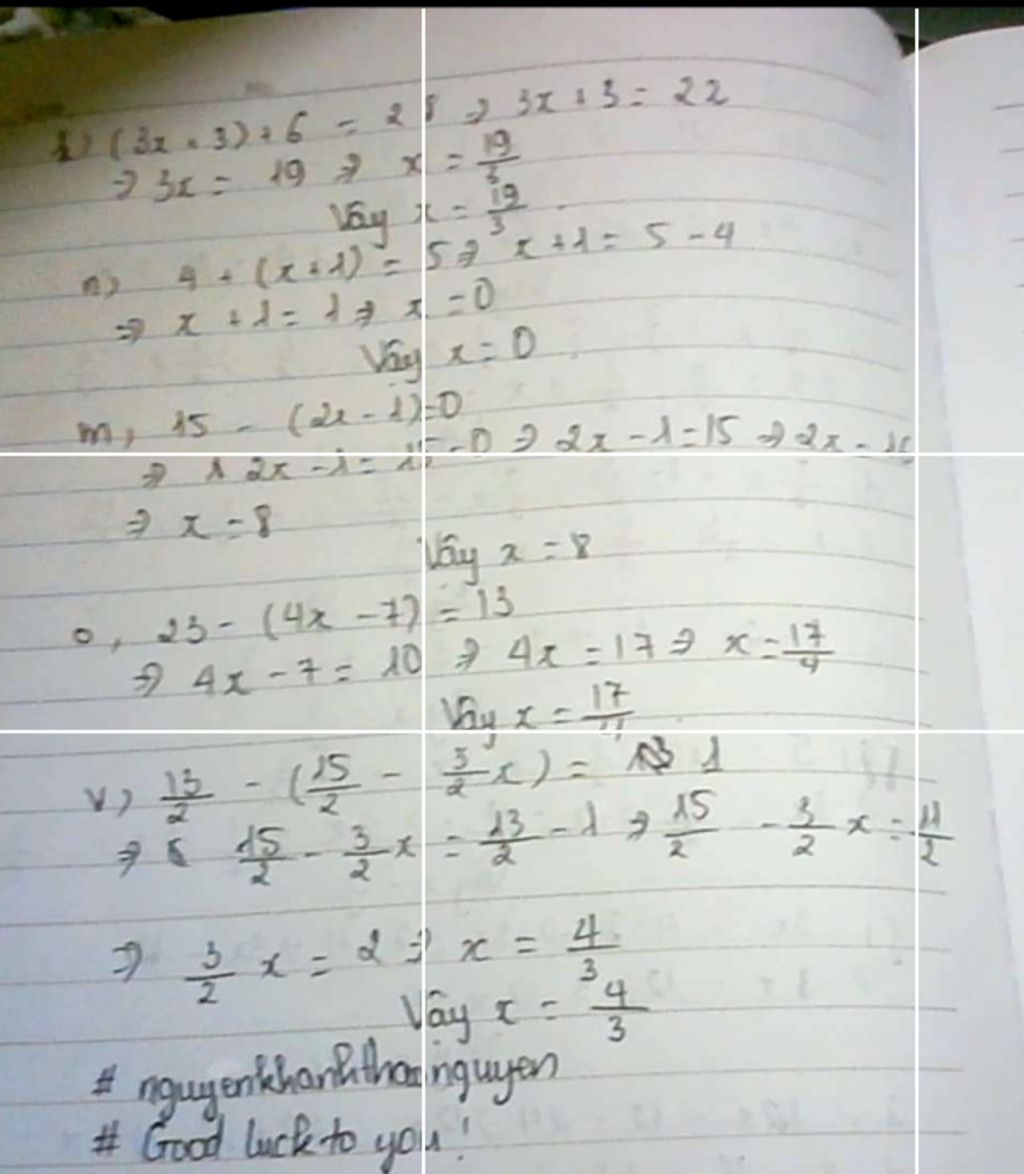 (3x + 3) + 6 = 28 ⇒ 3x + 3 = 22
⇒ 3x = 19 ⇒ x = 19/3
Vậy x = 19/3.
n) 4 + (x + 1) = 5 ⇒ x + 1 = 5 - 4
⇒ x + 1 = 1 ⇒ x = 0
Vậy x = 0.
m, 15 - (2x - 1) = 0
⇒ 2x - 1 = 15 - 0 ⇒ 2x - 1 = 15 ⇒ 2x = 16
⇒ x = 8
Vậy x = 8
o, 23 - (4x - 7) = 13
⇒ 4x - 7 = 10 ⇒ 4x = 17 ⇒ x = 17/4
Vậy x = 17/4.
v) 13/2 - (15/2 - 3/2 x) = 1
⇒ 15/2 - 3/2 x = 13/2 - 1 ⇒ 15/2 - 3/2 x = 11/2
⇒ 3/2 x = 2 ⇒ x = 4/3
Vậy x = 4/3
# nguyenkhanhthaonguyen
# Good luck to you!